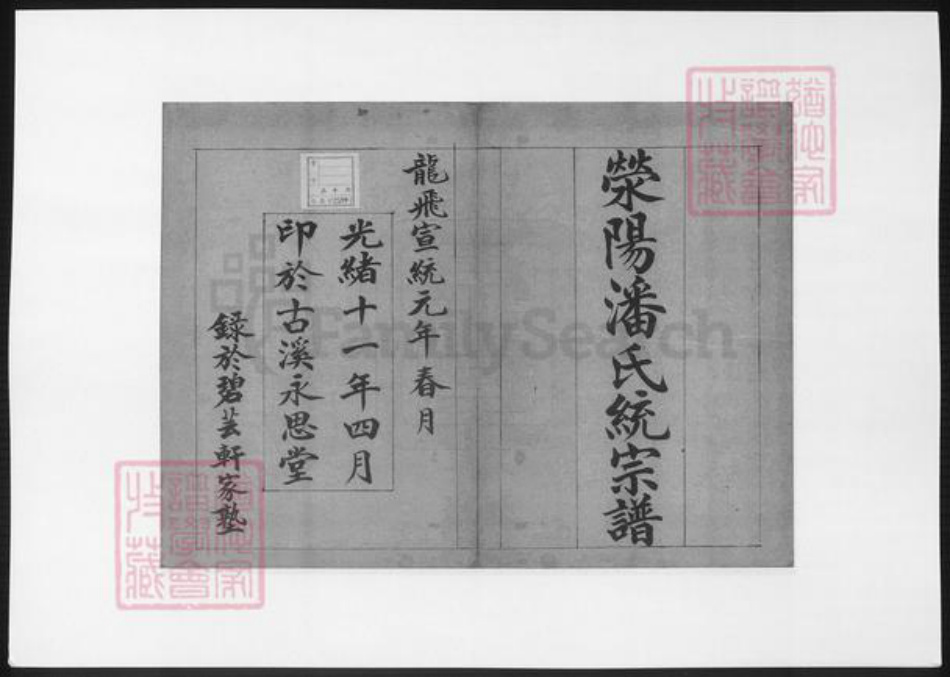 滎陽潘氏統宗譜
龍飛宣統元年春月
光緒十一年四月
印於古溪永思堂
錄於碧芸軒家塾
FamilySearch